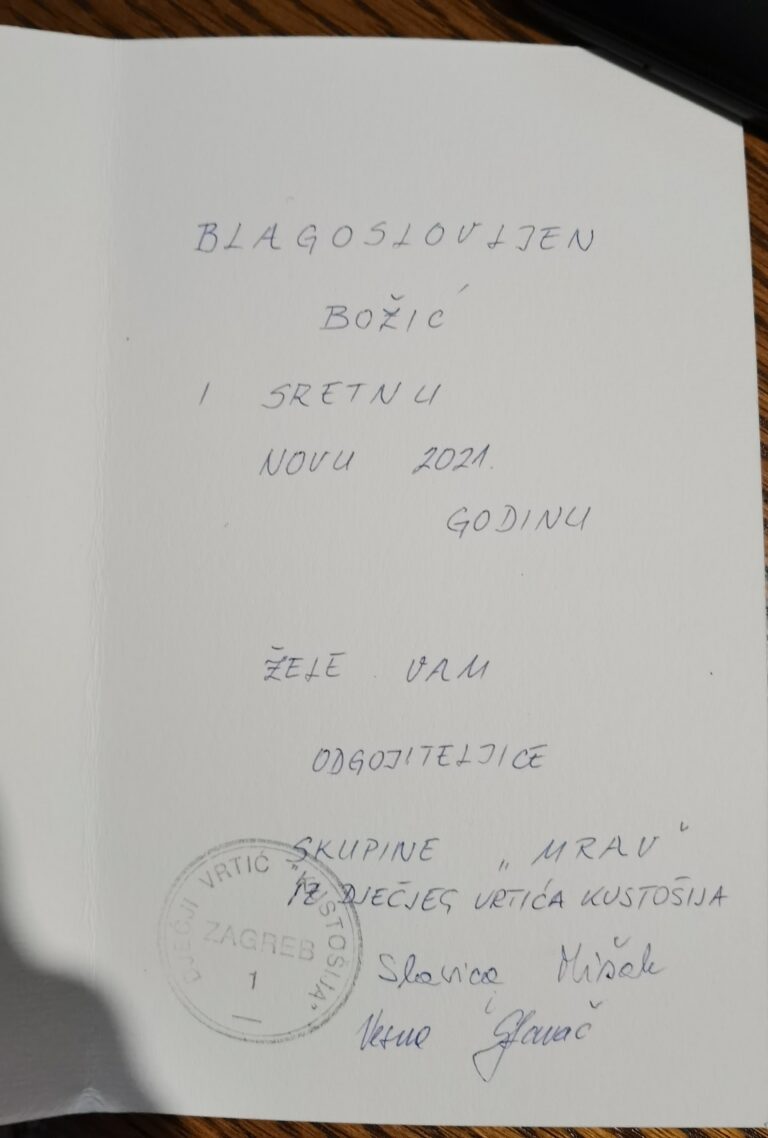 BLAGOSLOVLJEN
BOŽIĆ
I SRETNU
NOVU 2021.
GODINU
ŽELE VAM
ODGOJITELJICE
SKUPINE „MRAV"
IZ DJEČJEG VRTIĆA KUSTOŠIJA
Slavica
i
Vesna
DJEČJI VRTIĆ "KUSTOŠIJA"
ZAGREB
1